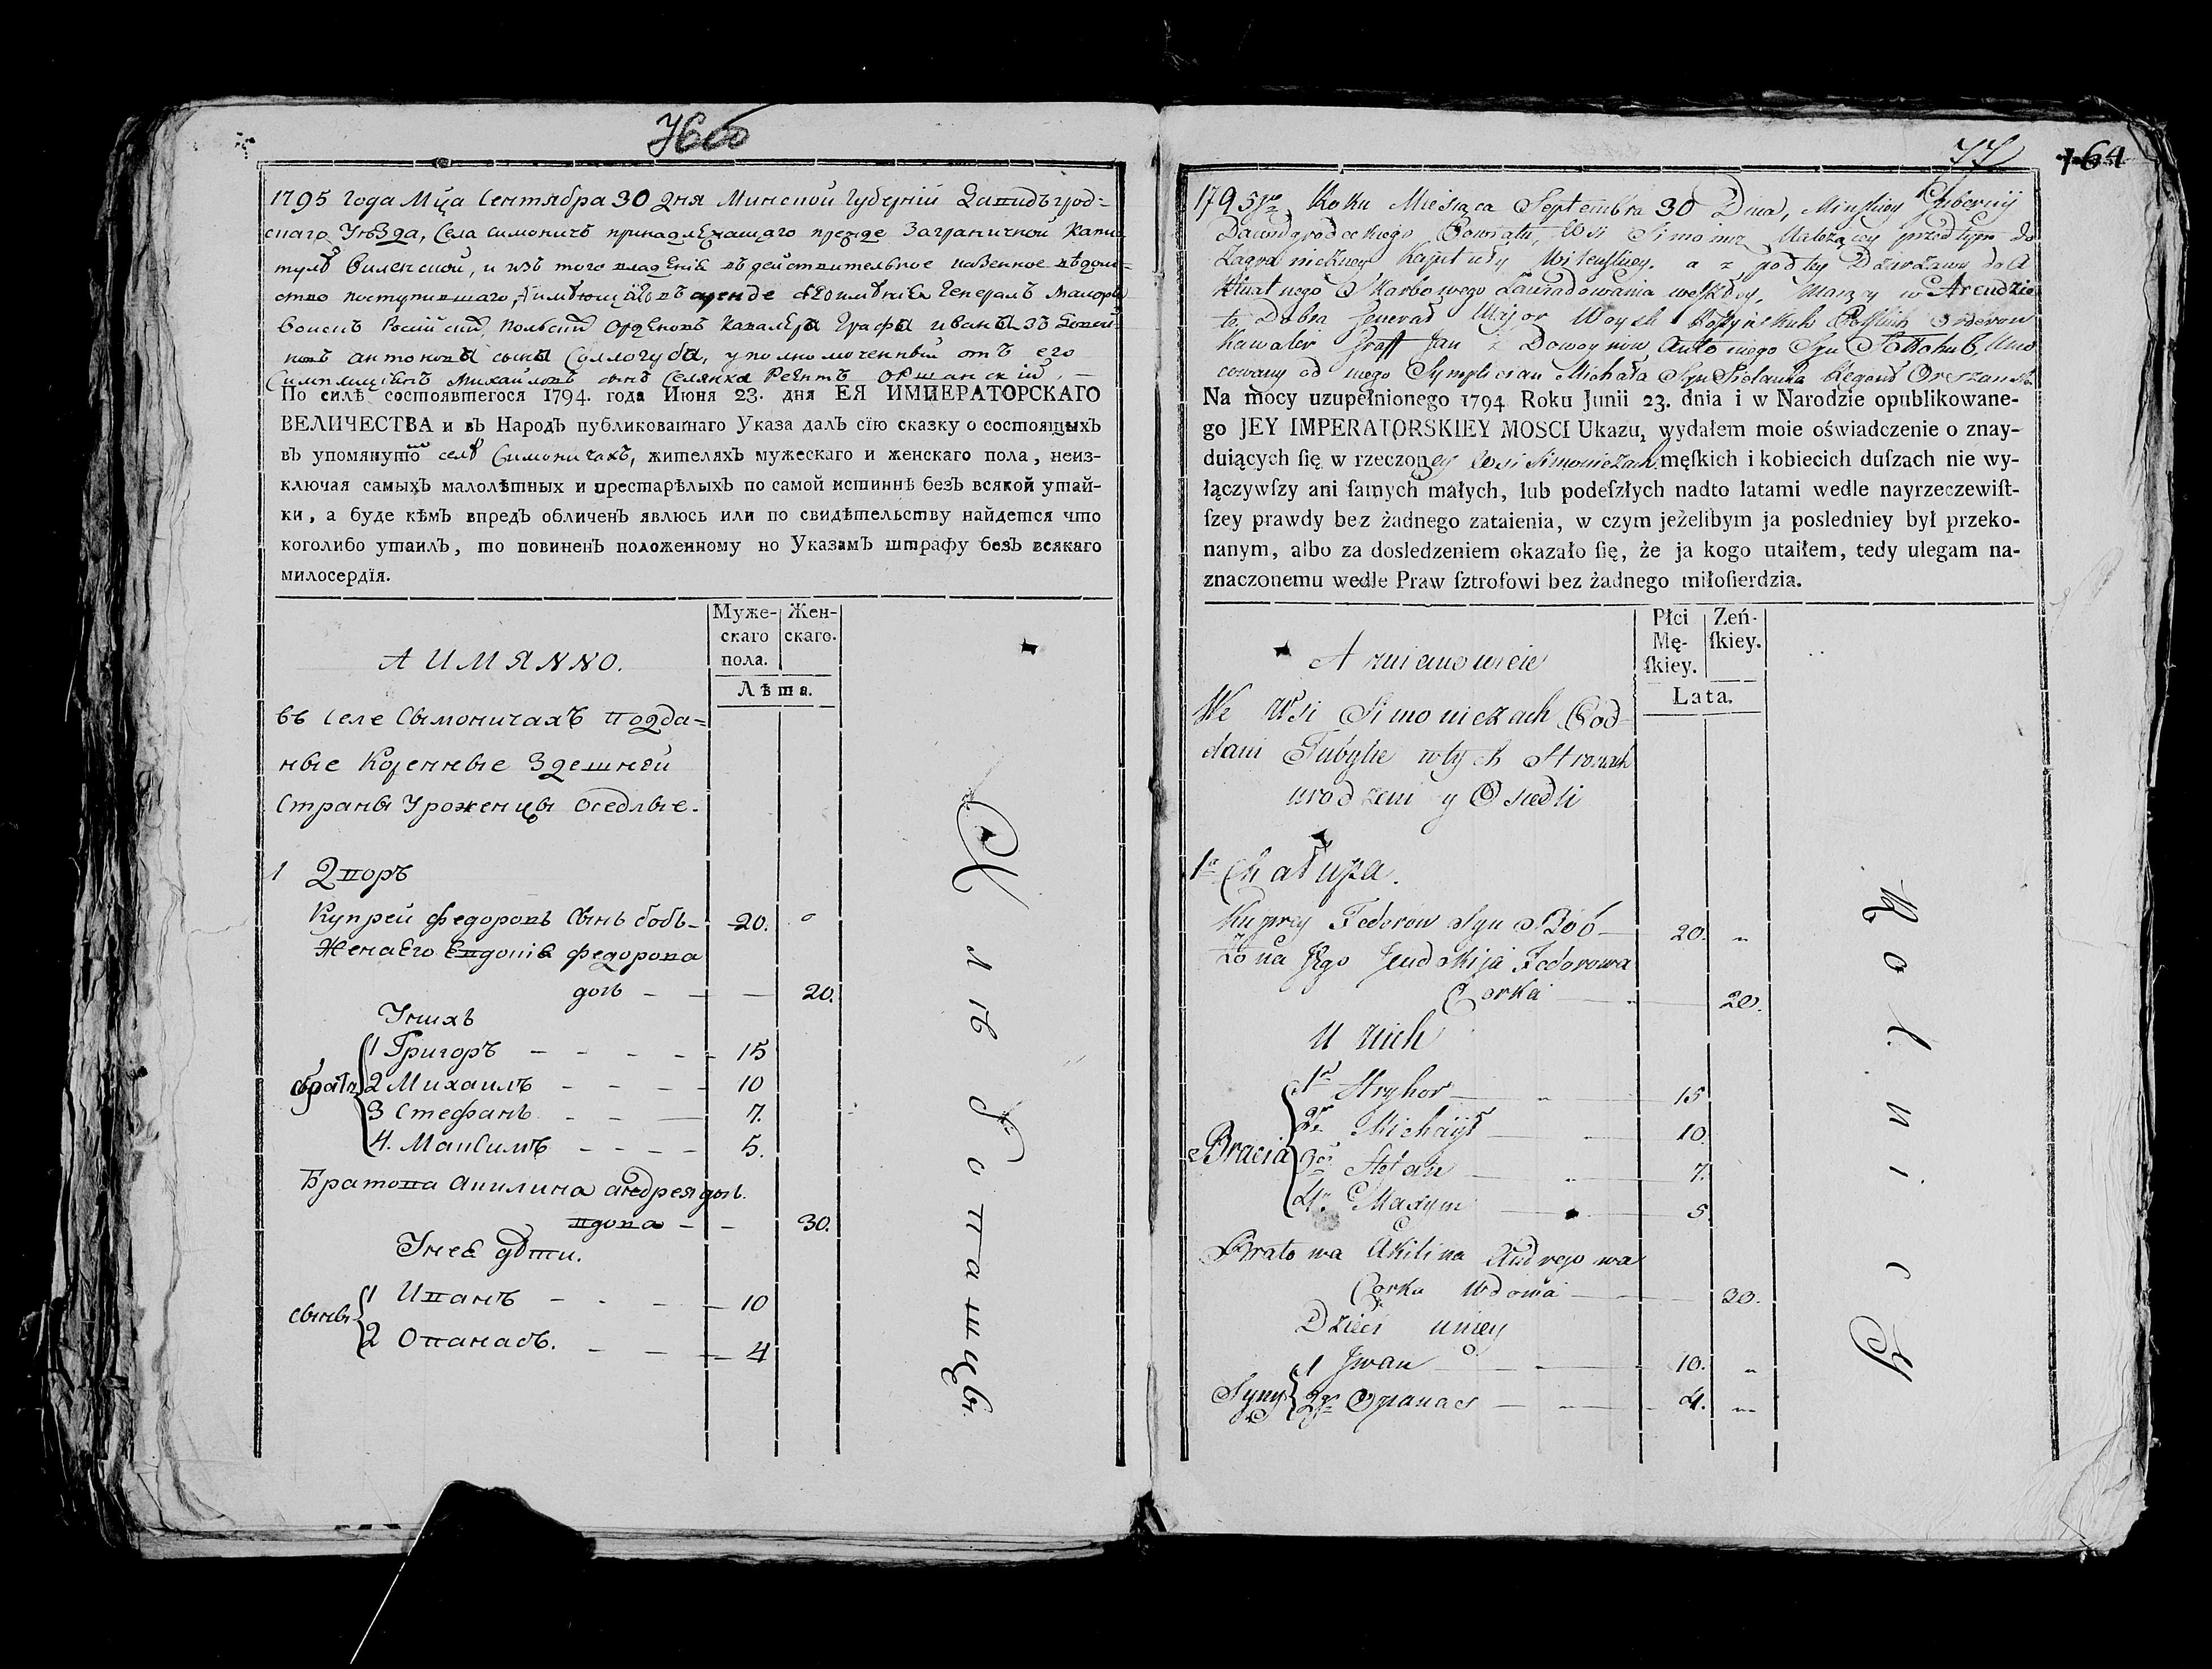 7600
1795 Года Мца Сентября 30 дня Минской Губерній Давидъгрод=
скаго Уѣзда, Села Симоничъ принадлежащаго прежде Заграничной Капи
тулѣ Виленской, и изъ того владенія въ действительное казенное вѣдом=
ство поступившаго, имѣющаго въ аренде Генералъ Маиоръ
Воискъ Росийскихъ, Польскихъ Орденовъ Кавалера Графа Ивана
Антонова сына Соллогуба, уполномоченный отъ его
Симплициянъ Михаиловъ сынъ Селянка Регентъ Оршанскій
По силѣ состоявшегося 1794. года Июня 23. дня ЕЯ ИМПЕРАТОРСКАГО
ВЕЛИЧЕСТВА и въ Народъ публикованнаго Указа далъ сїю сказку о состоящыхъ
въ упомянутомъ селѣ Симоничахъ, жителяхъ мужескаго и женскаго пола, неиз-
ключая самыхъ малолѣтных и престарѣлыхъ по самой истиннѣ безъ всякой утай-
ки, а буде кѣмъ впредъ обличенъ явлюсь или по свидѣтельству найдется что
коголибо утаилъ, то повиненъ положенному по Указамъ штрафу безъ всякаго
милосердїя.
А ИМЯННО.
Муже-
скаго
пола.
Жен-
скаго.
Лѣта.
въ Селе Сымоничахъ подда=
ные Коренные Здешней
Страны Уроженцы оседлые.
1 Дворъ
Купрей Федоровъ Сынъ бобъ 20. "
Жена Его Евдокія Федорова
дочь 20.
У нихъ
братья
1 Григоръ 15
2 Михаилъ 10
3 Стефанъ 7.
4. Максимъ 5.
Братова Акилина Андрея дочь
вдова 30.
У нее дѣти.
сыны
1 Иванъ 10
2 Опанасъ. 4
Хлѣбопашцы.
77
164
1795go Roku Miesiąca Septembra 30 Dnia, Minskiey Gubernij
Dawidgrodeckiego Powiatu, Wsi Simonicz Należącey przedtym do
Zagraniczney Kapituły Wilenskiey. a z pod tey Dzierżawy do A
ktualnego Skarbowego Zawiadowania weszłey, Maiący w Arendzie
te Dobra Generał Major Woysk Rossyiskich Polskich Orderow
Kawaler Graff Jan z Antoniego Syn Sołłohub, Umo
cowany od niego Symplician Michała Syn Sielanka Regent Orszanski
Na mocy uzupełnionego 1794 Roku Junii 23. dnia i w Narodzie opublikowane-
go JEY IMPERATORSKIEY MOSCI Ukazu, wydałem moie oświadczenie o znay-
duiących ſię w rzeczoney Wsi Simoniczach męſkich i kobiecich duſzach nie wy-
łączywſzy ani ſamych małych, lub podeſzłych nadto latami wedle nayrzeczewiſt-
ſzey prawdy bez żadnego zataienia, w czym jeżelibym ja posledniey był przeko-
nanym, albo za dosledzeniem okazało ſię, że ja kogo utaiłem, tedy ulegam na-
znaczonemu wedle Praw ſztrofowi bez żadnego miłoſierdzia.
A mianowicie
Płci
Mę-
ſkiey.
Zeń-
ſkiey.
Lata.
We Wsi Simoniczach Pod
dani Tubylce w tych Stronach
urodzeni y Osiedli
1a Chałupa.
Kuprey Fedorow Syn Bob 20. "
Żona Jego Jeudokija Fedorowa
Corka 20.
U nich
Bracia
1 Hryhor 15
2 Michaył 10.
3 Stefan 7.
4 Maxym 5
Bratowa Akilina Andrejowa
Corka Wdowa 30.
Dzieci u niey
Syny
1 Jwan 10. "
2 Opanas 4. "
Rolnicy